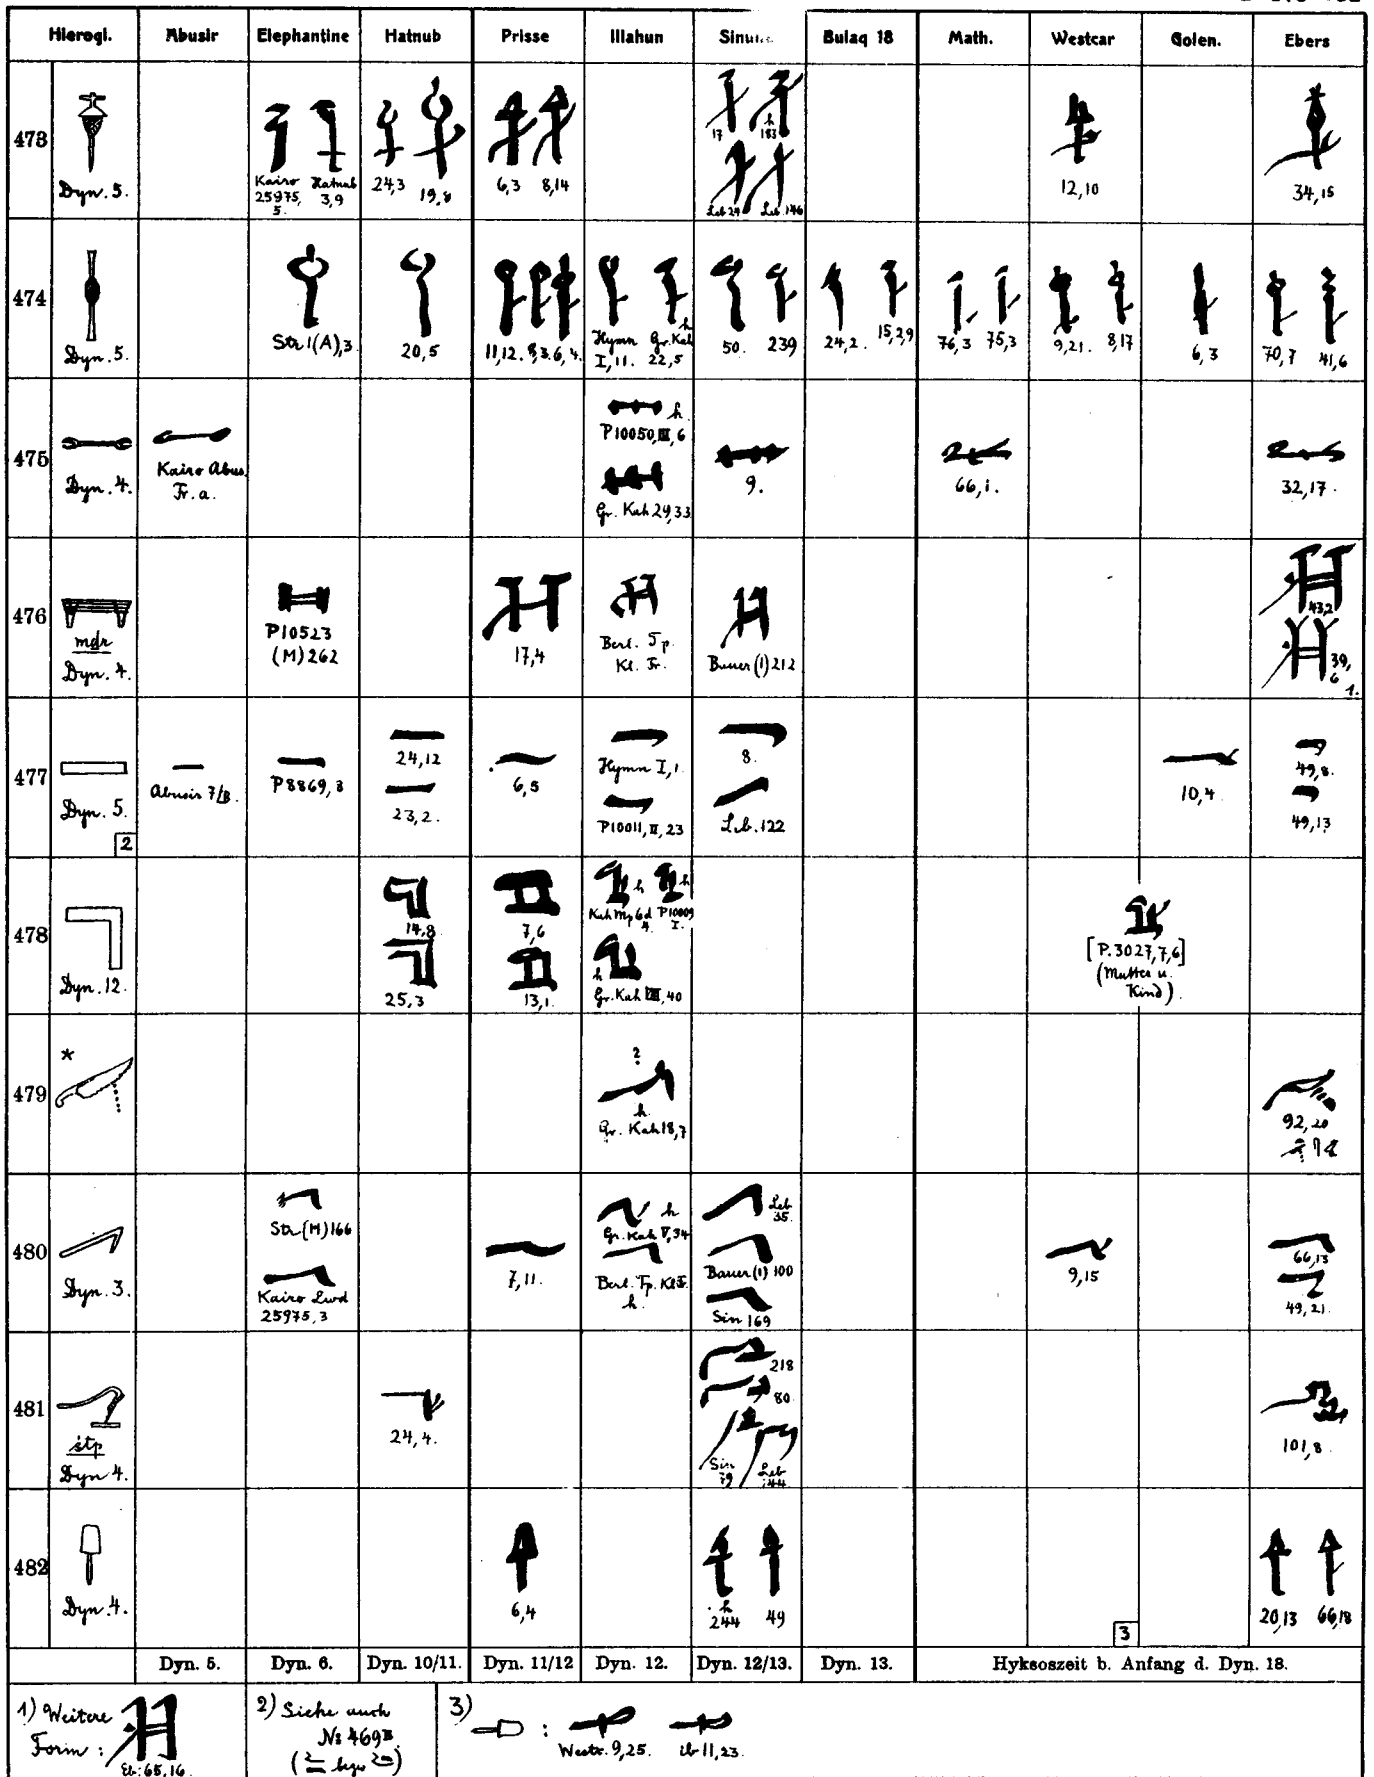 Hierogl. Abusir Elephantine Hatnub Prisse Illahun Bulaq 18 Math. Westcar Golen. Ebers
473
Dyn. 5.
Kairo 25975, 5.
Hatnub 3,9
24,3
6,3 8,14
17
h 183
Leb 146
12,10
34,15
474
Dyn. 5.
Str 1(A),3
20,5
11,12.
Hymn I,11.
h Gr. Kah 22,5
50. 239
24,2. 15,2,9
76,3 75,3
9,21. 8,17
6,3
70,7 41,6
475
Dyn. 4.
Kairo Abus. Fr. a.
h P10050,III,6
Gr. Kah 29,33
9.
66,1.
32,17.
476
mdr
Dyn. 4.
P10523 (M) 262
17,4
Berl. Tp. Kl. Fr.
Bauer (1) 212
43,2
39,6
1.
477
Dyn. 5.
2
P8869,3
24,12
23,2.
6,5
Hymn I,1.
P10011,II,23
8.
Leb. 122
10,4.
49,8.
49,13
478
Dyn. 12.
14,8
25,3
7,6
13,1.
h h
P10009 I.
h
Gr. Kah 40
[P. 3027,7,6]
(Mutter u. Kind).
479
*
?
h
Gr. Kah 18,7
92,20
480
Dyn. 3.
Str (M) 166
Kairo Lwd 25975,3
7,11.
h
Gr. Kah V,34
Berl. Tp. Kl Fr. h.
Leb 35.
Bauer (1) 100
Sin 169
9,15
66,13
49,21.
481
stp
Dyn 4.
24,4.
218
80.
Sin 79
101,8.
482
Dyn. 4.
6,4
h 244 49
3
20,13 66,18
Dyn. 5. Dyn. 6. Dyn. 10/11. Dyn. 11/12 Dyn. 12. Dyn. 12/13. Dyn. 13. Hyksoszeit b. Anfang d. Dyn. 18.
1) Weitere
Form :
Eb. 65,16.
2) Siehe auch
No 469B
3) :
Westc. 9,25. ib 11,23.